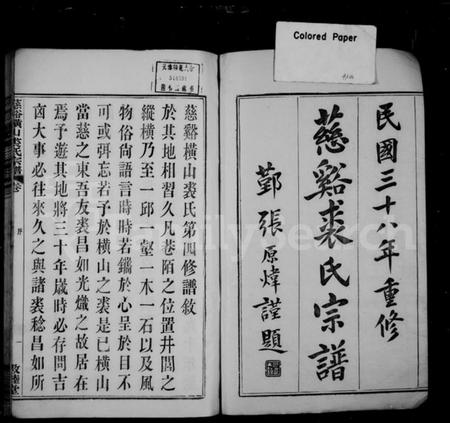 Colored Paper
民國三十年重修
慈谿裘氏宗譜
鄞張原煒謹題
慈谿橫山裘氏第四修譜敘
於其地相習久凡巷陌之位置井閭之
縱橫乃至一邱一壑一木一石以及風
物俗尚語言時時若鐫於心呈於目不
可或弭忘若予於橫山之裘是已橫山
當慈之東吾友裘昌如光熾之故居在
焉予遊其地將三十年歲時必存問吉
凶大事必往來久之與諸裘稔昌如所
慈谿橫山裘氏宗譜
卷
序
一
敦睦堂
familysearch